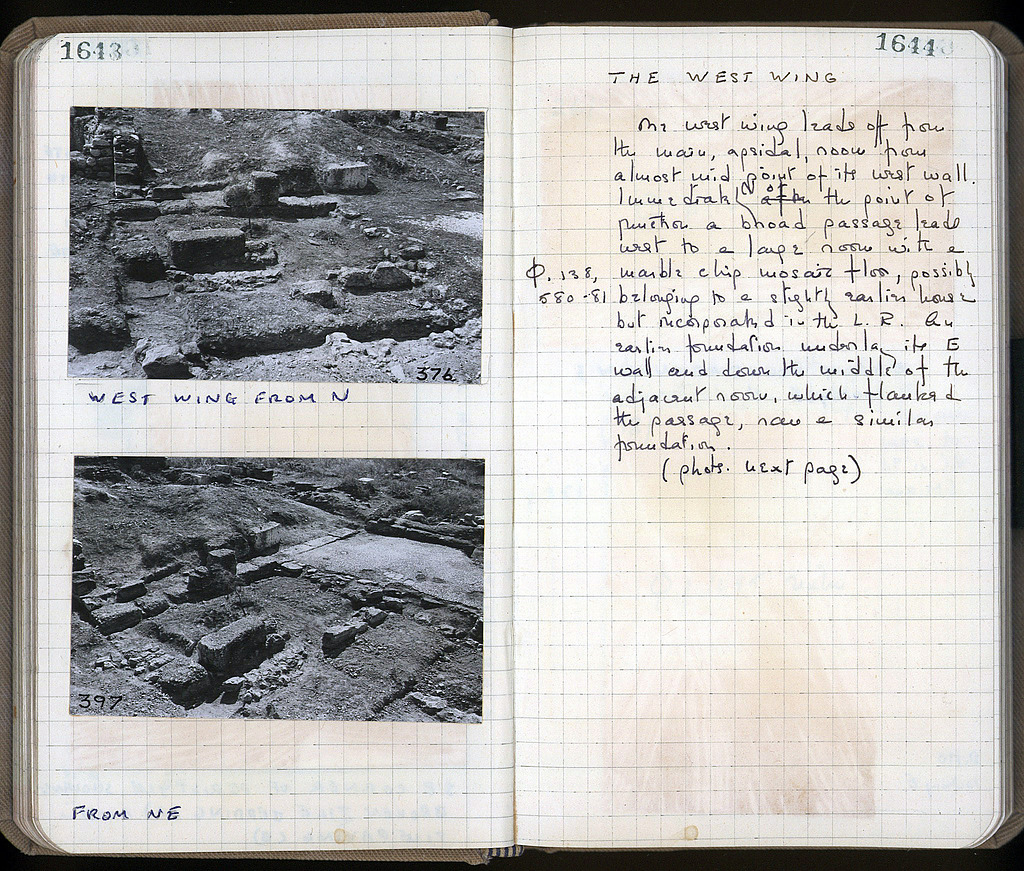 1643
376
WEST WING FROM N
397
FROM NE
1644
THE WEST WING
The west wing leads off from
the main, apsidal, room from
almost mid point of its west wall.
Immediately of the point of
junction a broad passage leads
west to a large room with a
marble chip mosaic floor, possibly
Φ. 138,
580-81
belonging to a slightly earlier house
but incorporated in the L. R. An
earlier foundation underlay its E
wall and down the middle of the
adjacent room, which flanked
the passage, ran a similar
foundation.
(phots. next page)